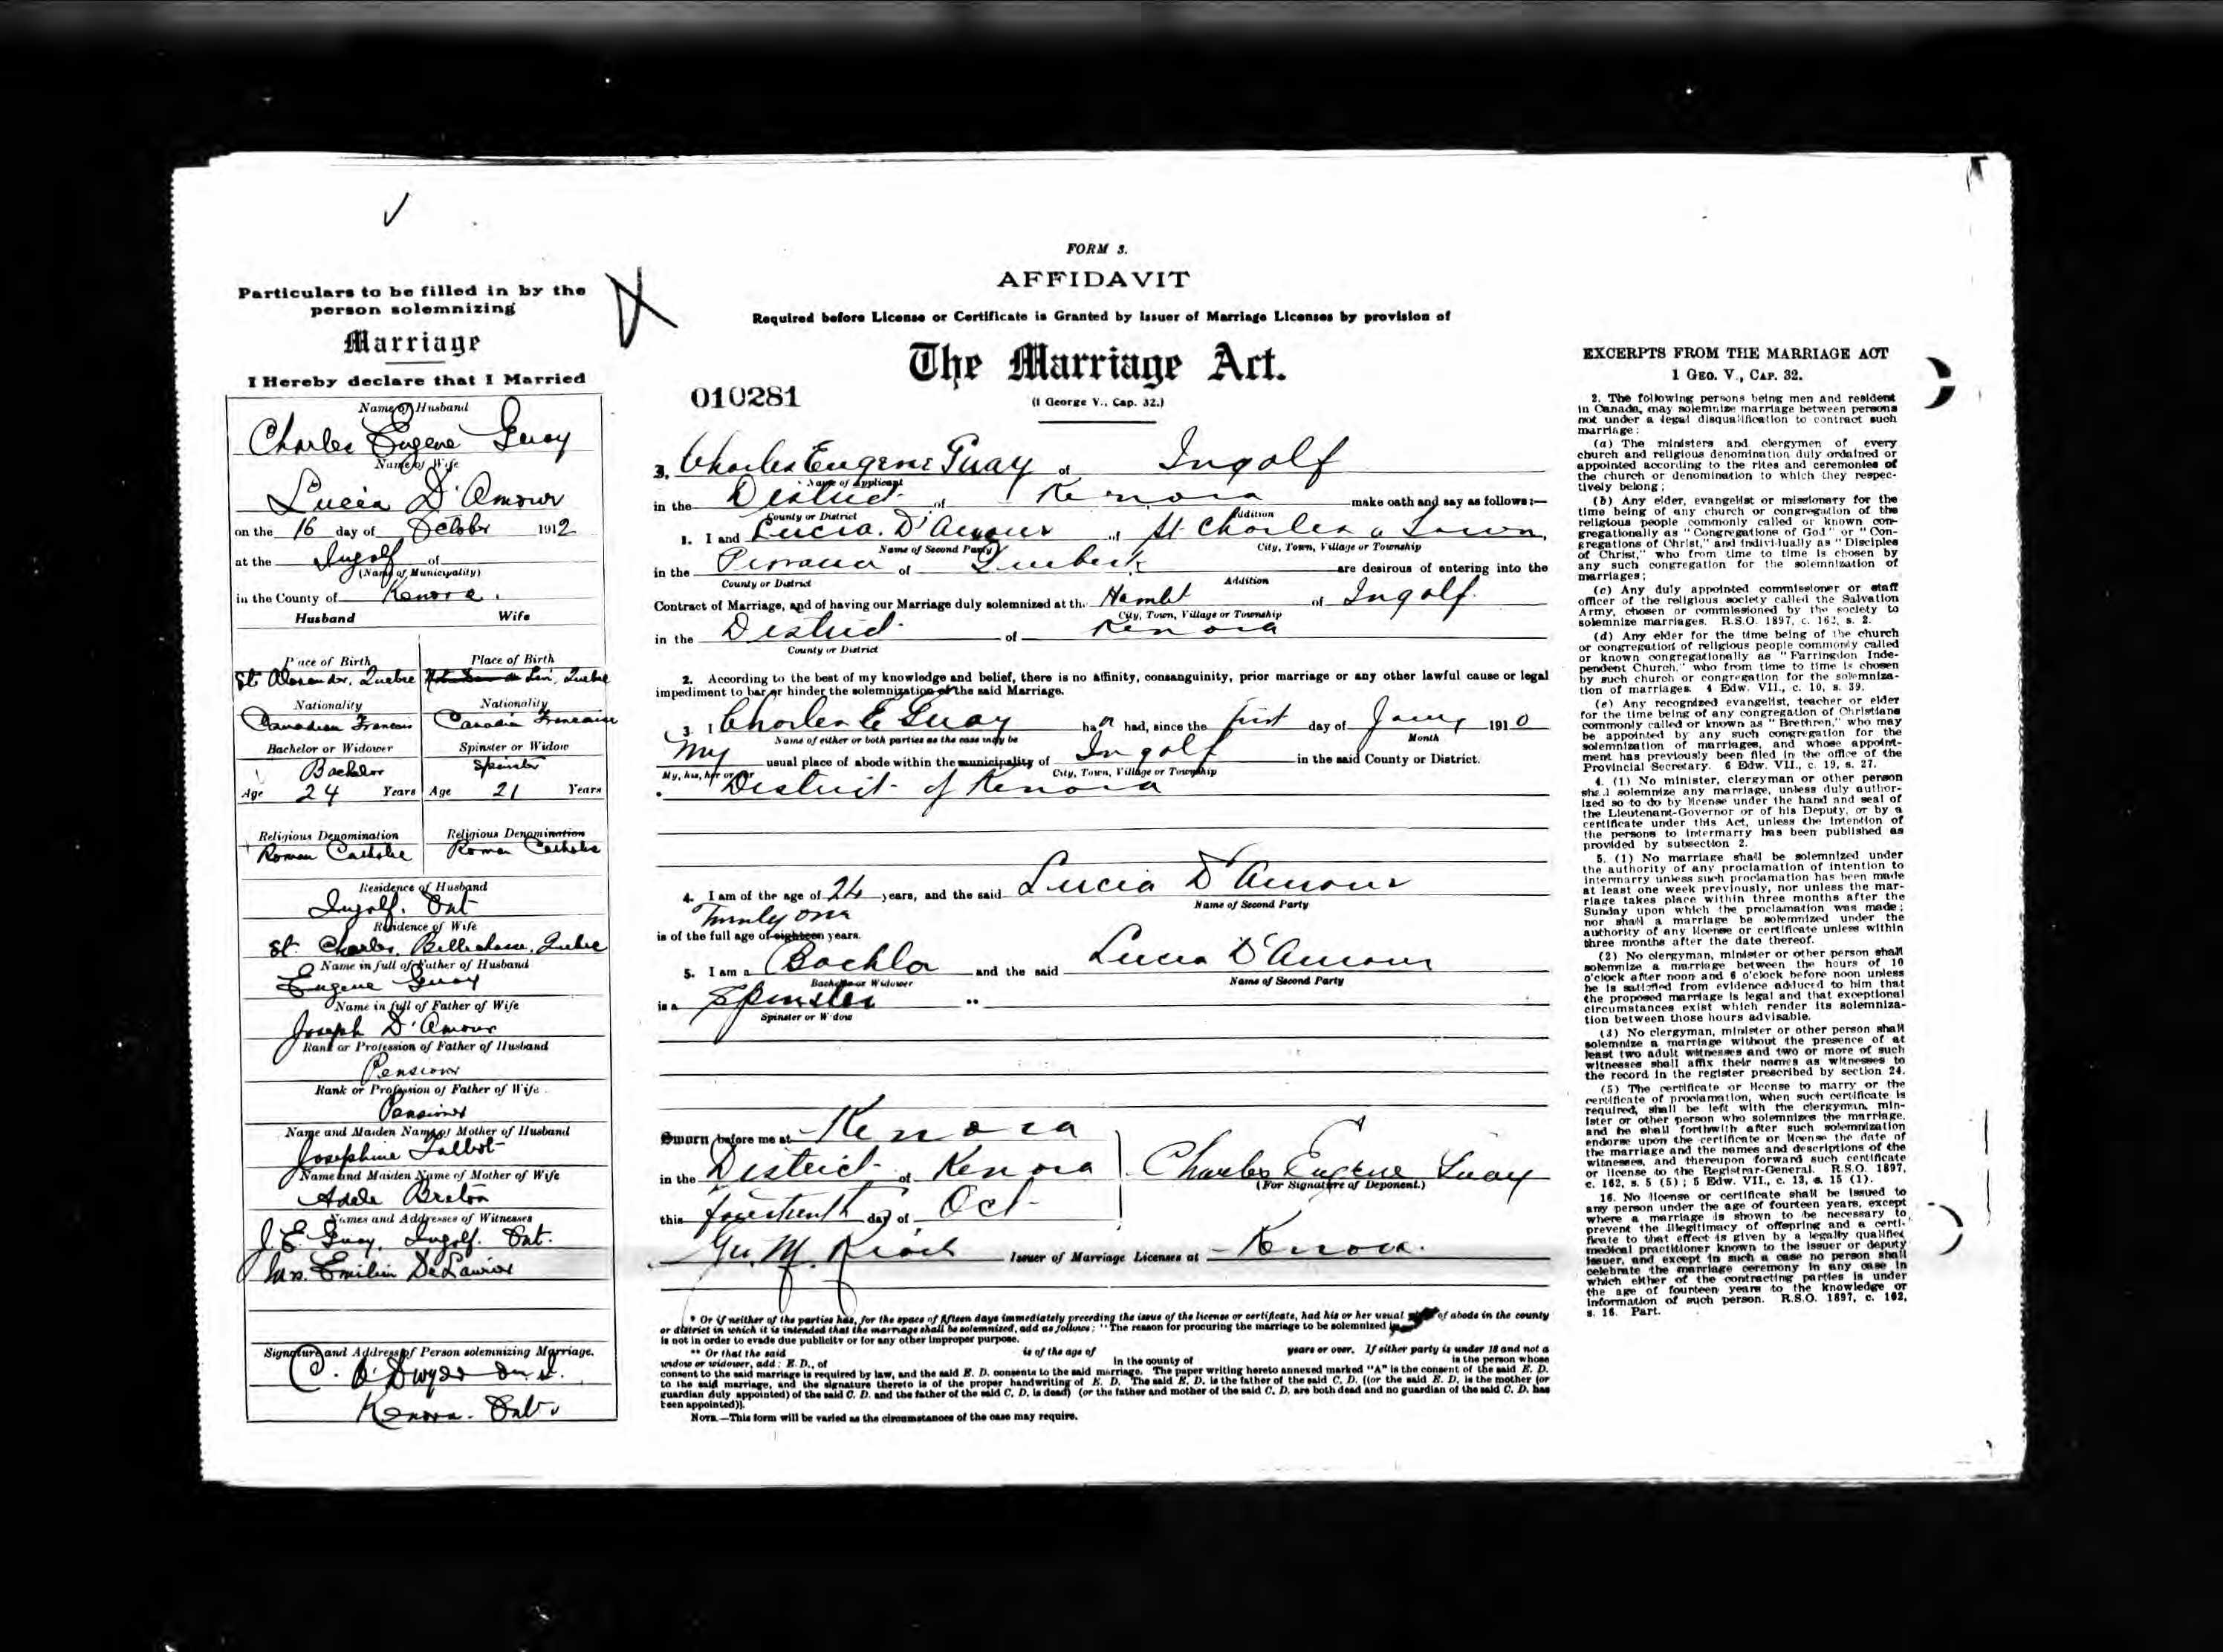 Particulars to be filled in by the
person solemnizing
Marriage
I Hereby declare that I Married
Name of Husband
Charles Eugene Guay
Name of Wife
Lucia D'Amour
on the 16 day of October 1912
at the Ingolf of
(Name of Municipality)
in the County of Kenora.
Husband Wife
Place of Birth Place of Birth
St Alexander, Quebec Quebec
Nationality Nationality
Canadian Francais Canadia Francaise
Bachelor or Widower Spinster or Widow
Bachelor Spinster
Age 24 Years Age 21 Years
Religious Denomination Religious Denomination
Roman Catholic Roman Catholic
Residence of Husband
Ingolf. Ont
Residence of Wife
St. Charles, Bellechasse, Quebec
Name in full of Father of Husband
Eugene Guay
Name in full of Father of Wife
Joseph D'Amour
Rank or Profession of Father of Husband
Pensioner
Rank or Profession of Father of Wife
Pensioner
Name and Maiden Name of Mother of Husband
Josephine Talbot
Name and Maiden Name of Mother of Wife
Adele Breton
Names and Addresses of Witnesses
J. E. Guay, Ingolf. Ont.
Emilien DeLaurier
Signature and Address of Person solemnizing Marriage.
C. O'Dwyer
Kenora. Ont.
FORM 3.
AFFIDAVIT
Required before License or Certificate is Granted by Issuer of Marriage Licenses by provision of
The Marriage Act.
010281
(1 George V., Cap. 32.)
3. Charles Eugene Guay of Ingolf
Name of Applicant
in the District of Kenora make oath and say as follows:—
County or District Addition
1. I and Lucia. D'Amour of St Charles a Town,
Name of Second Party City, Town, Village or Township
in the Province of Quebeck are desirous of entering into the
County or District Addition
Contract of Marriage, and of having our Marriage duly solemnized at the Hamlet of Ingolf.
City, Town, Village or Township
in the District of Kenora
County or District
2. According to the best of my knowledge and belief, there is no affinity, consanguinity, prior marriage or any other lawful cause or legal
impediment to bar or hinder the solemnization of the said Marriage.
3. I Charles E Guay had, since the first day of 1910
Name of either or both parties as the case may be Month
My usual place of abode within the municipality of Ingolf in the said County or District.
My, his, her or our City, Town, Village or Township
District of Kenora
4. I am of the age of 24 years, and the said Lucia D'Amour
Name of Second Party
Twenty one
is of the full age of eighteen years.
5. I am a Bachlor and the said Lucia D'Amour
Bachelor or Widower Name of Second Party
is a Spinster
Spinster or Widow
Sworn before me at Kenora
in the District of Kenora Charles Eugene Guay
(For Signature of Deponent.)
this fourteenth day of Oct
Geo. M. Issuer of Marriage Licenses at Kenora.
* Or if neither of the parties has, for the space of fifteen days immediately preceding the issue of the license or certificate, had his or her usual of abode in the county
or district in which it is intended that the marriage shall be solemnized, add as follows: "The reason for procuring the marriage to be solemnized
is not in order to evade due publicity or for any other improper purpose.
** Or that the said is of the age of years or over. If either party is under 18 and not a
widow or widower, add: E. D., of in the county of is the person whose
consent to the said marriage is required by law, and the said E. D. consents to the said marriage. The paper writing hereto annexed marked "A" is the consent of the said E. D.
to the said marriage, and the signature thereto is of the proper handwriting of E. D. The said E. D. is the father of the said C. D. ((or the said E. D. is the mother (or
guardian duly appointed) of the said C. D. and the father of the said C. D. is dead) (or the father and mother of the said C. D. are both dead and no guardian of the said C. D. has
been appointed)).
NOTE.—This form will be varied as the circumstances of the case may require.
EXCERPTS FROM THE MARRIAGE ACT
1 GEO. V., CAP. 32.
2. The following persons being men and resident
in Canada, may solemnize marriage between persons
not under a legal disqualification to contract such
marriage:
(a) The ministers and clergymen of every
church and religious denomination duly ordained or
appointed according to the rites and ceremonies of
the church or denomination to which they respec-
tively belong;
(b) Any elder, evangelist or missionary for the
time being of any church or congregation of the
religious people commonly called or known con-
gregationally as "Congregations of God" or "Con-
gregations of Christ," and individually as "Disciples
of Christ," who from time to time is chosen
by any such congregation for the solemnization of
marriages;
(c) Any duly appointed commissioner or staff
officer of the religious society called the Salvation
Army, chosen or commissioned by the society to
solemnize marriages. R.S.O. 1897, c. 162, s. 2.
(d) Any elder for the time being of the church
or congregation of religious people commonly called
or known congregationally as "Farringdon Inde-
pendent Church," who from time to time is chosen
by such church or congregation for the solemniza-
tion of marriages. 4 Edw. VII., c. 10, s. 39.
(e) Any recognized evangelist, teacher or elder
for the time being of any congregation of Christians
commonly called or known as "Brethren," who may
be appointed by any such congregation for the
solemnization of marriages, and whose appoint-
ment has previously been filed in the office of the
Provincial Secretary. 6 Edw. VII., c. 19, s. 27.
4. (1) No minister, clergyman or other person
shall solemnize any marriage, unless duly author-
ized so to do by license under the hand and seal of
the Lieutenant-Governor or of his Deputy, or by a
certificate under this Act, unless the intention of
the persons to intermarry has been published as
provided by subsection 2.
5. (1) No marriage shall be solemnized under
the authority of any proclamation of intention to
intermarry unless such proclamation has been made
at least one week previously, nor unless the mar-
riage takes place within three months after the
Sunday upon which the proclamation was made;
nor shall a marriage be solemnized under the
authority of any license or certificate unless within
three months after the date thereof.
(2) No clergyman, minister or other person shall
solemnize a marriage between the hours of 10
o'clock after noon and 6 o'clock before noon unless
he is satisfied from evidence adduced to him that
the proposed marriage is legal and that exceptional
circumstances exist which render its solemniza-
tion between those hours advisable.
(3) No clergyman, minister or other person shall
solemnize a marriage without the presence of at
least two adult witnesses and two or more of such
witnesses shall affix their names as witnesses to
the record in the register prescribed by section 24.
(5) The certificate or license to marry or the
certificate of proclamation, when such certificate is
required, shall be left with the clergyman, min-
ister or other person who solemnizes the marriage,
and he shall forthwith after such solemnization
endorse upon the certificate or license the date of
the marriage and the names and descriptions of the
witnesses, and thereupon forward such certificate
or license to the Registrar-General. R.S.O. 1897,
c. 162, s. 5 (5); 5 Edw. VII., c. 13, s. 15 (1).
16. No license or certificate shall be issued to
any person under the age of fourteen years, except
where a marriage is shown to be necessary to
prevent the illegitimacy of offspring and a certi-
ficate to that effect is given by a legally qualified
medical practitioner known to the issuer or deputy
issuer, and except in such a case no person shall
celebrate the marriage ceremony in any case in
which either of the contracting parties is under
the age of fourteen years to the knowledge or
information of such person. R.S.O. 1897, c. 162,
s. 16. Part.